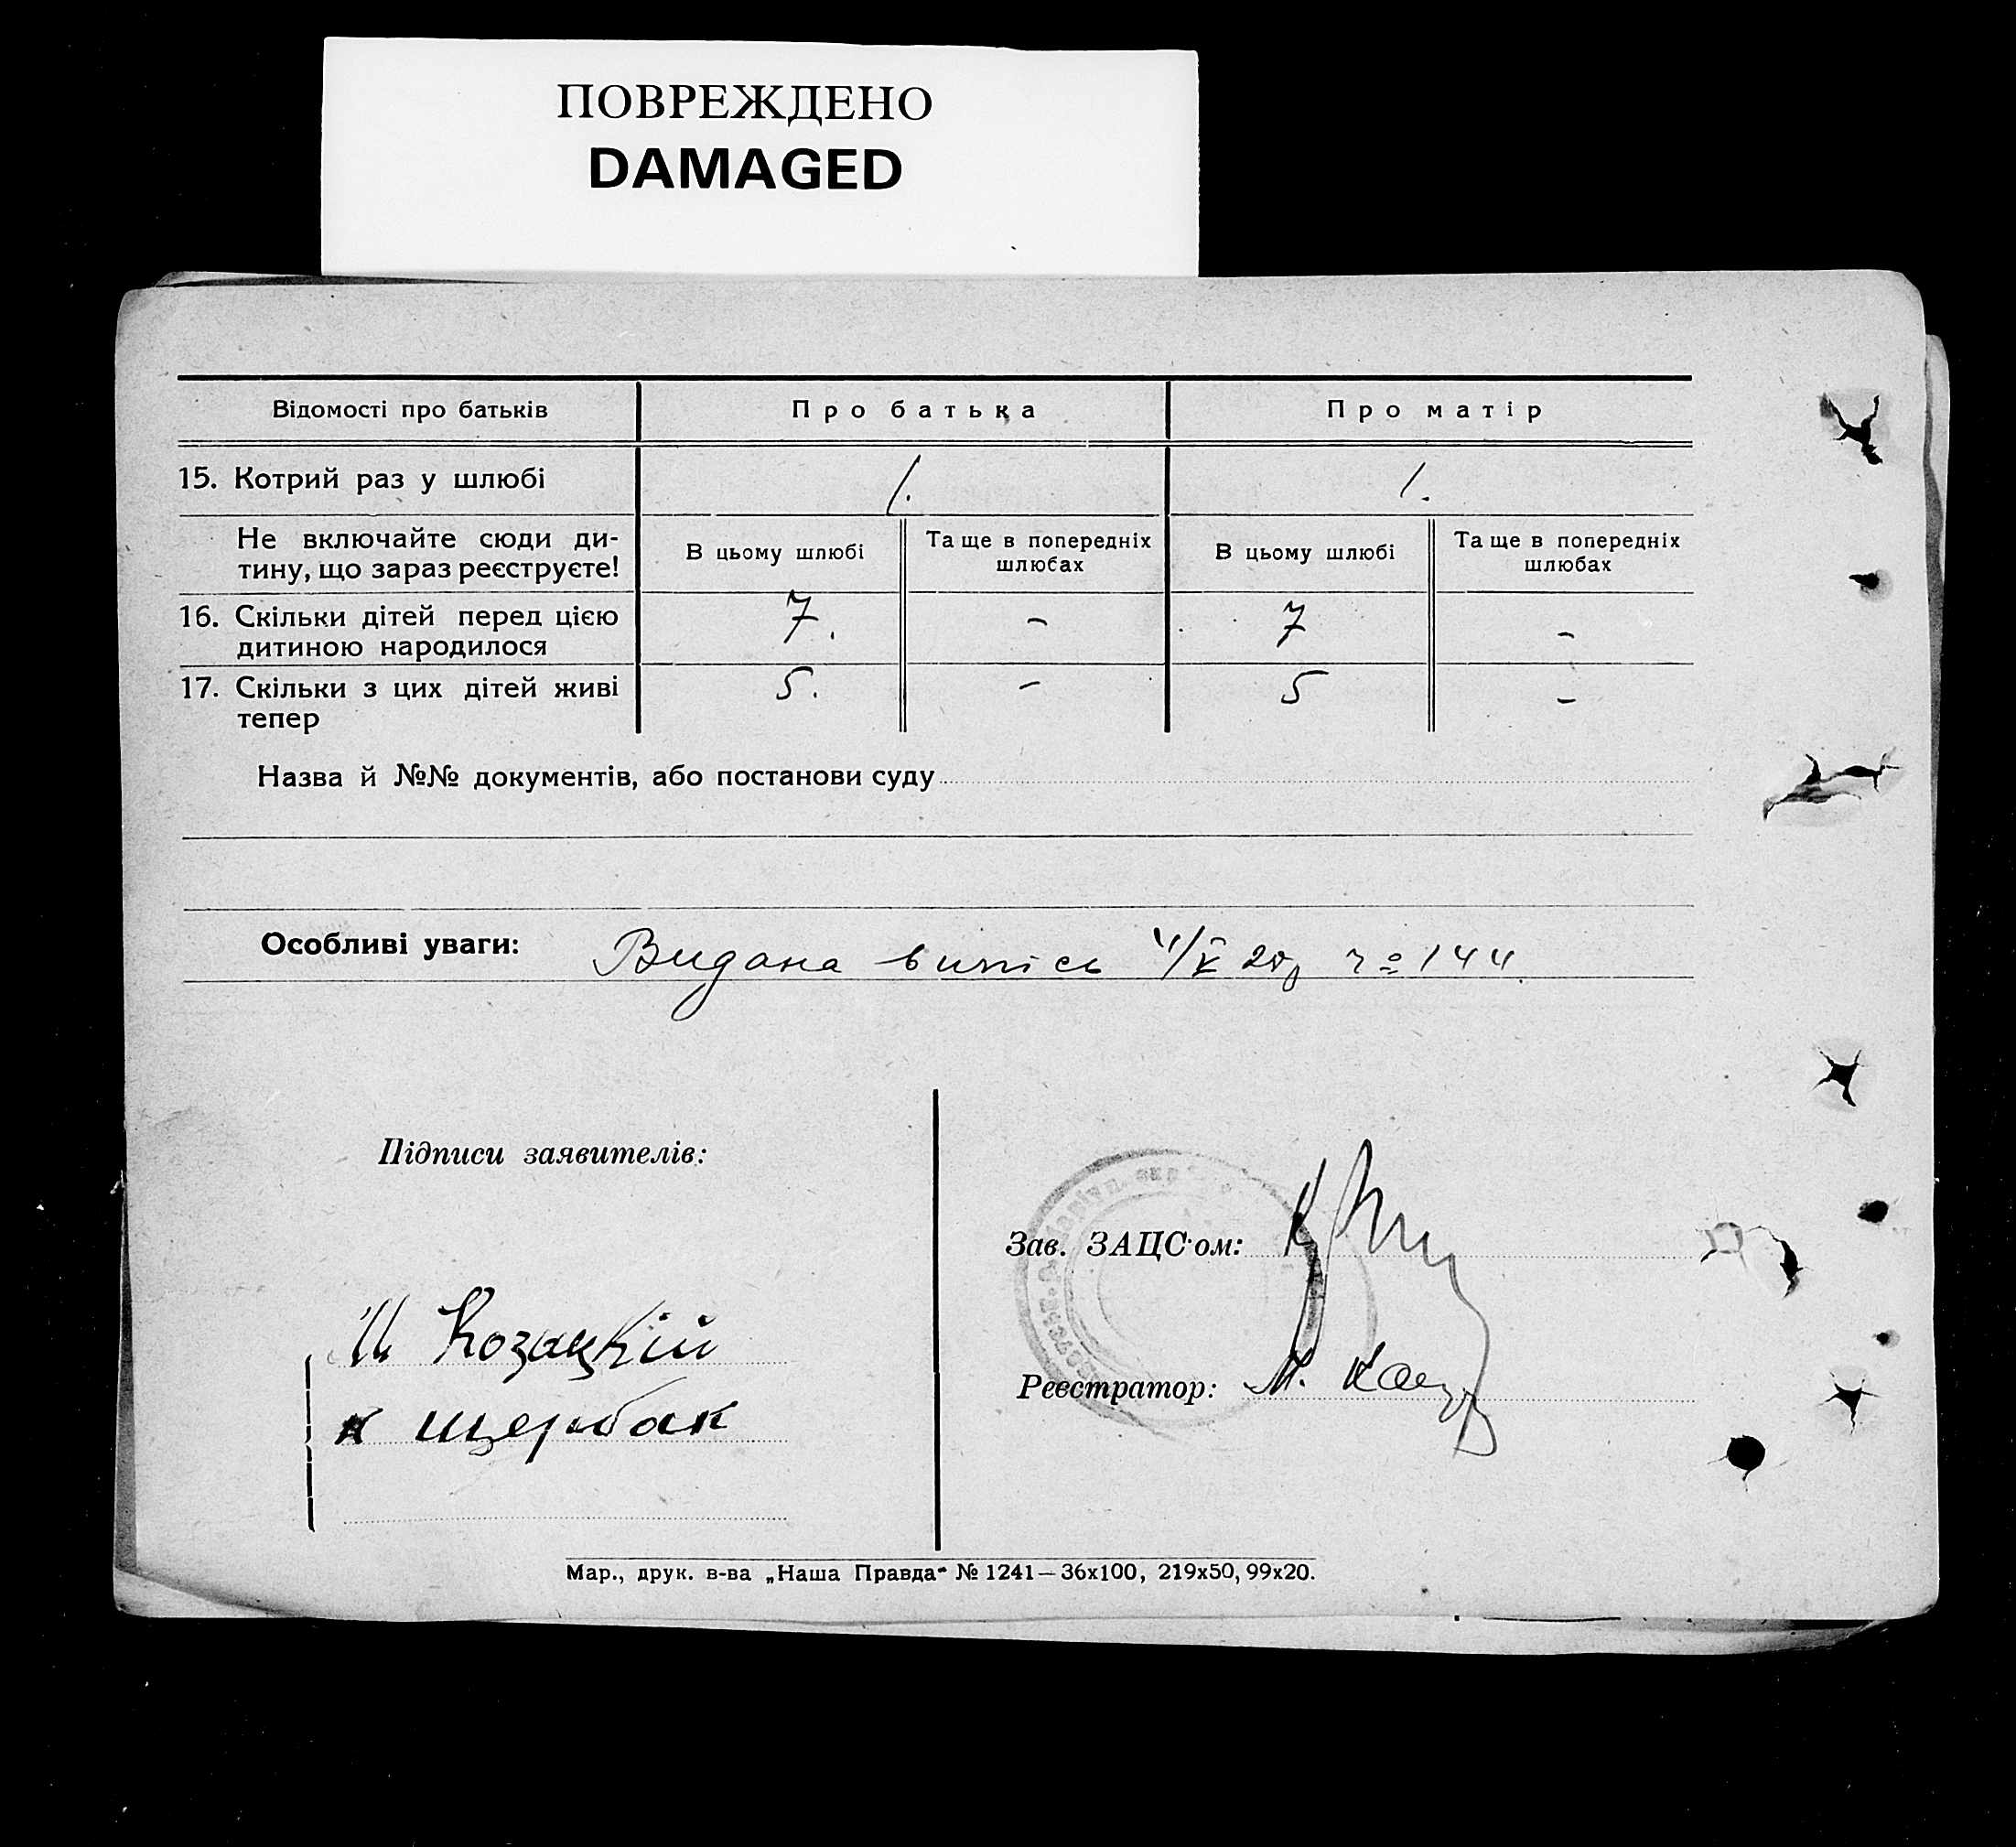 ПОВРЕЖДЕНО
DAMAGED
Відомості про батьків Про батька Про матір
15. Котрий раз у шлюбі 1. 1.
Не включайте сюди ди-
тину, що зараз реєструєте!
В цьому шлюбі
Та ще в попередніх
шлюбах
В цьому шлюбі
Та ще в попередніх
шлюбах
16. Скільки дітей перед цією
дитиною народилося
7. - 7 -
17. Скільки з цих дітей живі
тепер
5. - 5 -
Назва й №№ документів, або постанови суду
Особливі уваги: Видана випісь 4/V 28р №144
Підписи заявителів:
И Козацкій
к щербак
Зав. ЗАЦС'ом:
Реєстратор: М.
Мар., друк. в-ва „Наша Правда" № 1241—36х100, 219х50, 99х20.